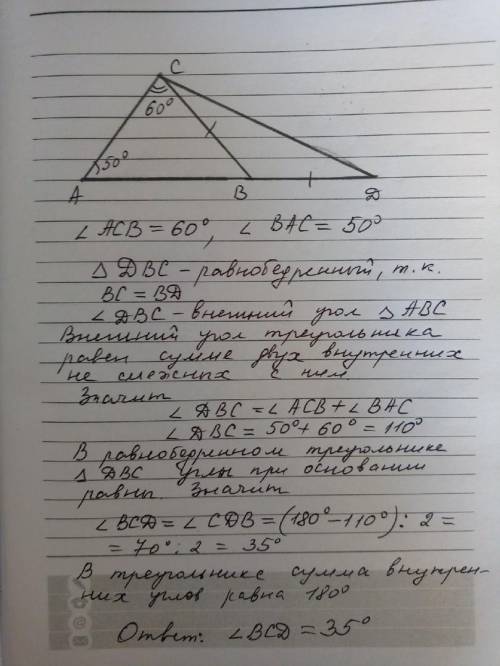 C
60°
50°
A B D
∠ ACB = 60°, ∠ BAC = 50°
△ DBC - равнобедренный, т.к.
BC = BD
∠ DBC - внешний угол △ ABC
Внешний угол треугольника
равен сумме двух внутренних
не смежных с ним.
Значит
∠ DBC = ∠ ACB + ∠ BAC
∠ DBC = 50° + 60° = 110°
В равнобедренном треугольнике
△ DBC углы при основании
равны. Значит
∠ BCD = ∠ CDB = (180° - 110°) : 2 =
= 70° : 2 = 35°
В треугольнике сумма внутрен-
них углов равна 180°
Ответ: ∠ BCD = 35°